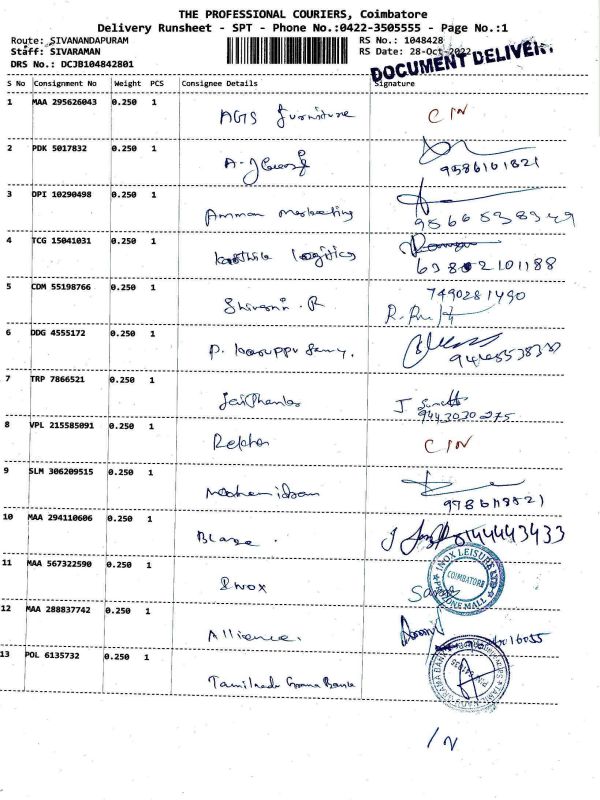 THE PROFESSIONAL COURIERS, Coimbatore
Delivery Runsheet - SPT - Phone No.:0422-3505555 - Page No.:1
Route: SIVANANDAPURAM RS No.: 1048428
Staff: SIVARAMAN RS Date: 28-Oct-2022
DOCUMENT DELIVERY
DRS No.: DCJB104842801
S No Consignment No Weight PCS Consignee Details Signature
1 MAA 295626043 0.250 1 AGS furniture CIN
2 PDK 5017832 0.250 1 A. 9586101821
3 DPI 10290498 0.250 1 Amman Marketing 9566538349
4 TCG 15041031 0.250 1 karthik logitics 63802101188
5 CDM 55198766 0.250 1 Shivani . R 7490281490
6 DDG 4555172 0.250 1 P. karuppu Samy.
7 TRP 7866521 0.250 1 J
9443030275
8 VPL 215585091 0.250 1 CIN
9 SLM 306209515 0.250 1
10 MAA 294110606 0.250 1 Blaze . J 8144443433
11 MAA 567322590 0.250 1 Inox
INOX LEISURE LTD COIMBATORE PROZONE MALL
12 MAA 288837742 0.250 1 Alliance.
13 POL 6135732 0.250 1 Tamilnadu Grama Bank